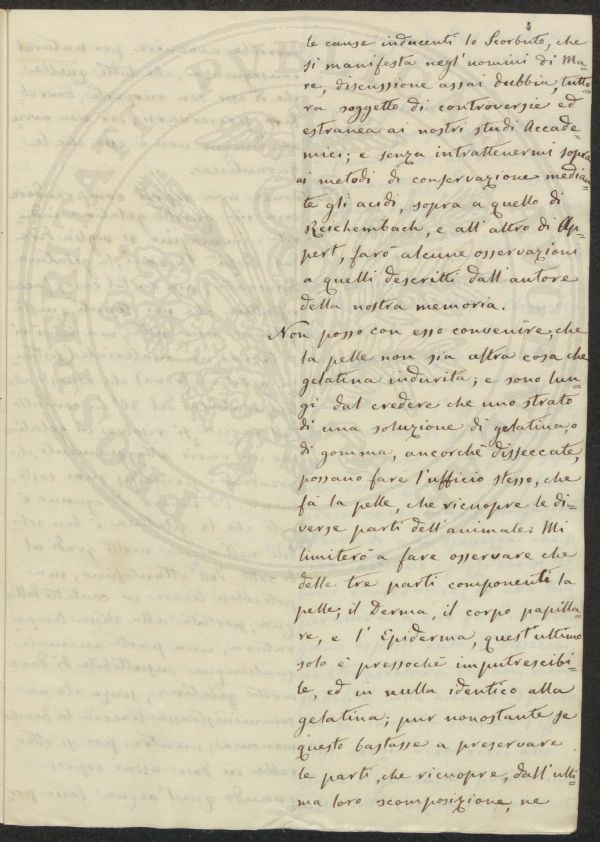 le cause inducenti lo Scorbuto, che
si manifesta negl'uomini di Ma=
re, discussione assai dubbia, tutto=
ra soggetto di controversie ed
estranea ai nostri studi Accade=
mici; e senza intrattenermi sopra
ai metodi di conservazione median=
te gli acidi, sopra a quello di
Reichembach, e all'altro di Ap=
pert, farò alcune osservazioni
a quelli descritti dall'autore
della nostra memoria.
Non posso con esso convenire, che
la pelle non sia altra cosa che
gelatina indurita; e sono lun=
gi dal credere che uno strato
di una soluzione di gelatina, o
di gomma, ancorchè disseccate,
possano fare l'ufficio stesso, che
fà la pelle, che ricuopre le di=
verse parti dell'animale. Mi
limiterò a fare osservare che
delle tre parti componenti la
pelle, il Derma, il corpo papilla=
re, e l'Epiderma, quest'ultimo
solo è pressochè imputrescibi=
le, ed in nulla identico alla
gelatina; pur nonostante se
questo bastasse a preservare
le parti, che ricuopre, dall'ulti=
ma loro scomposizione, ne